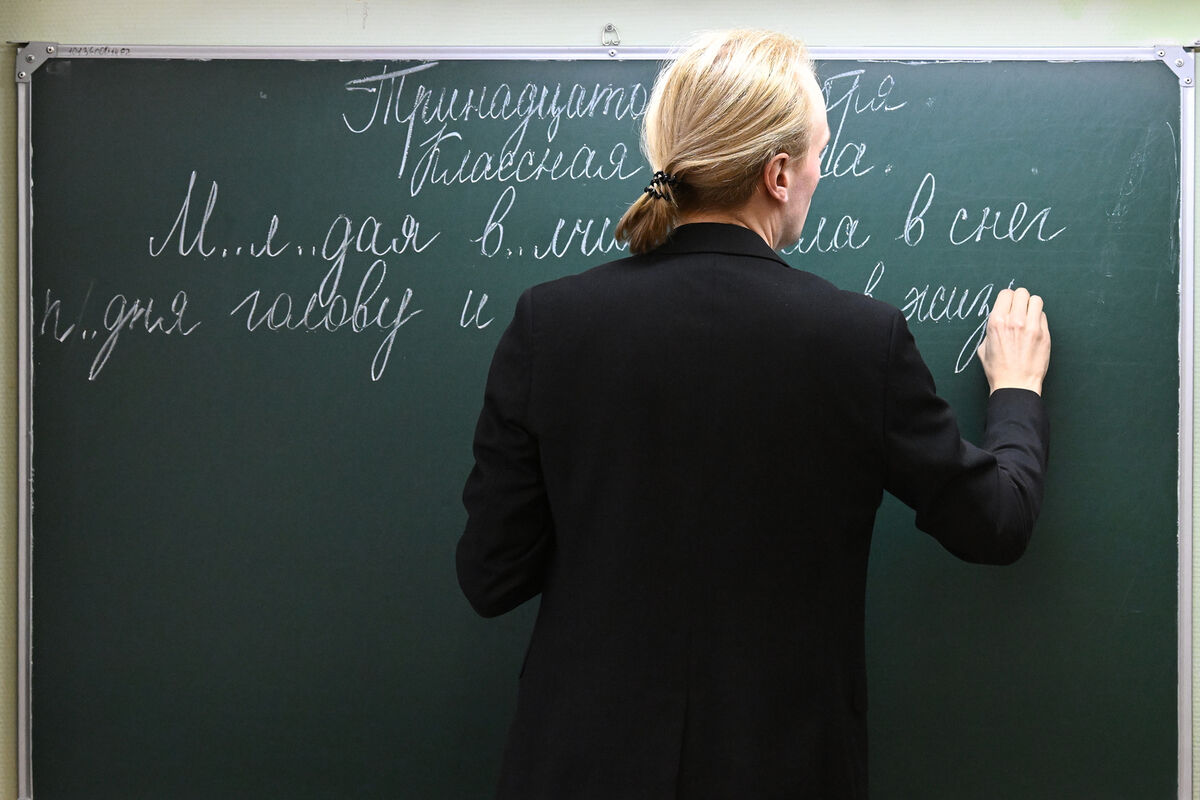 Тринадцато бря
Классная та.
М..л..дая в..лчи ла в снег
голову и в жиз